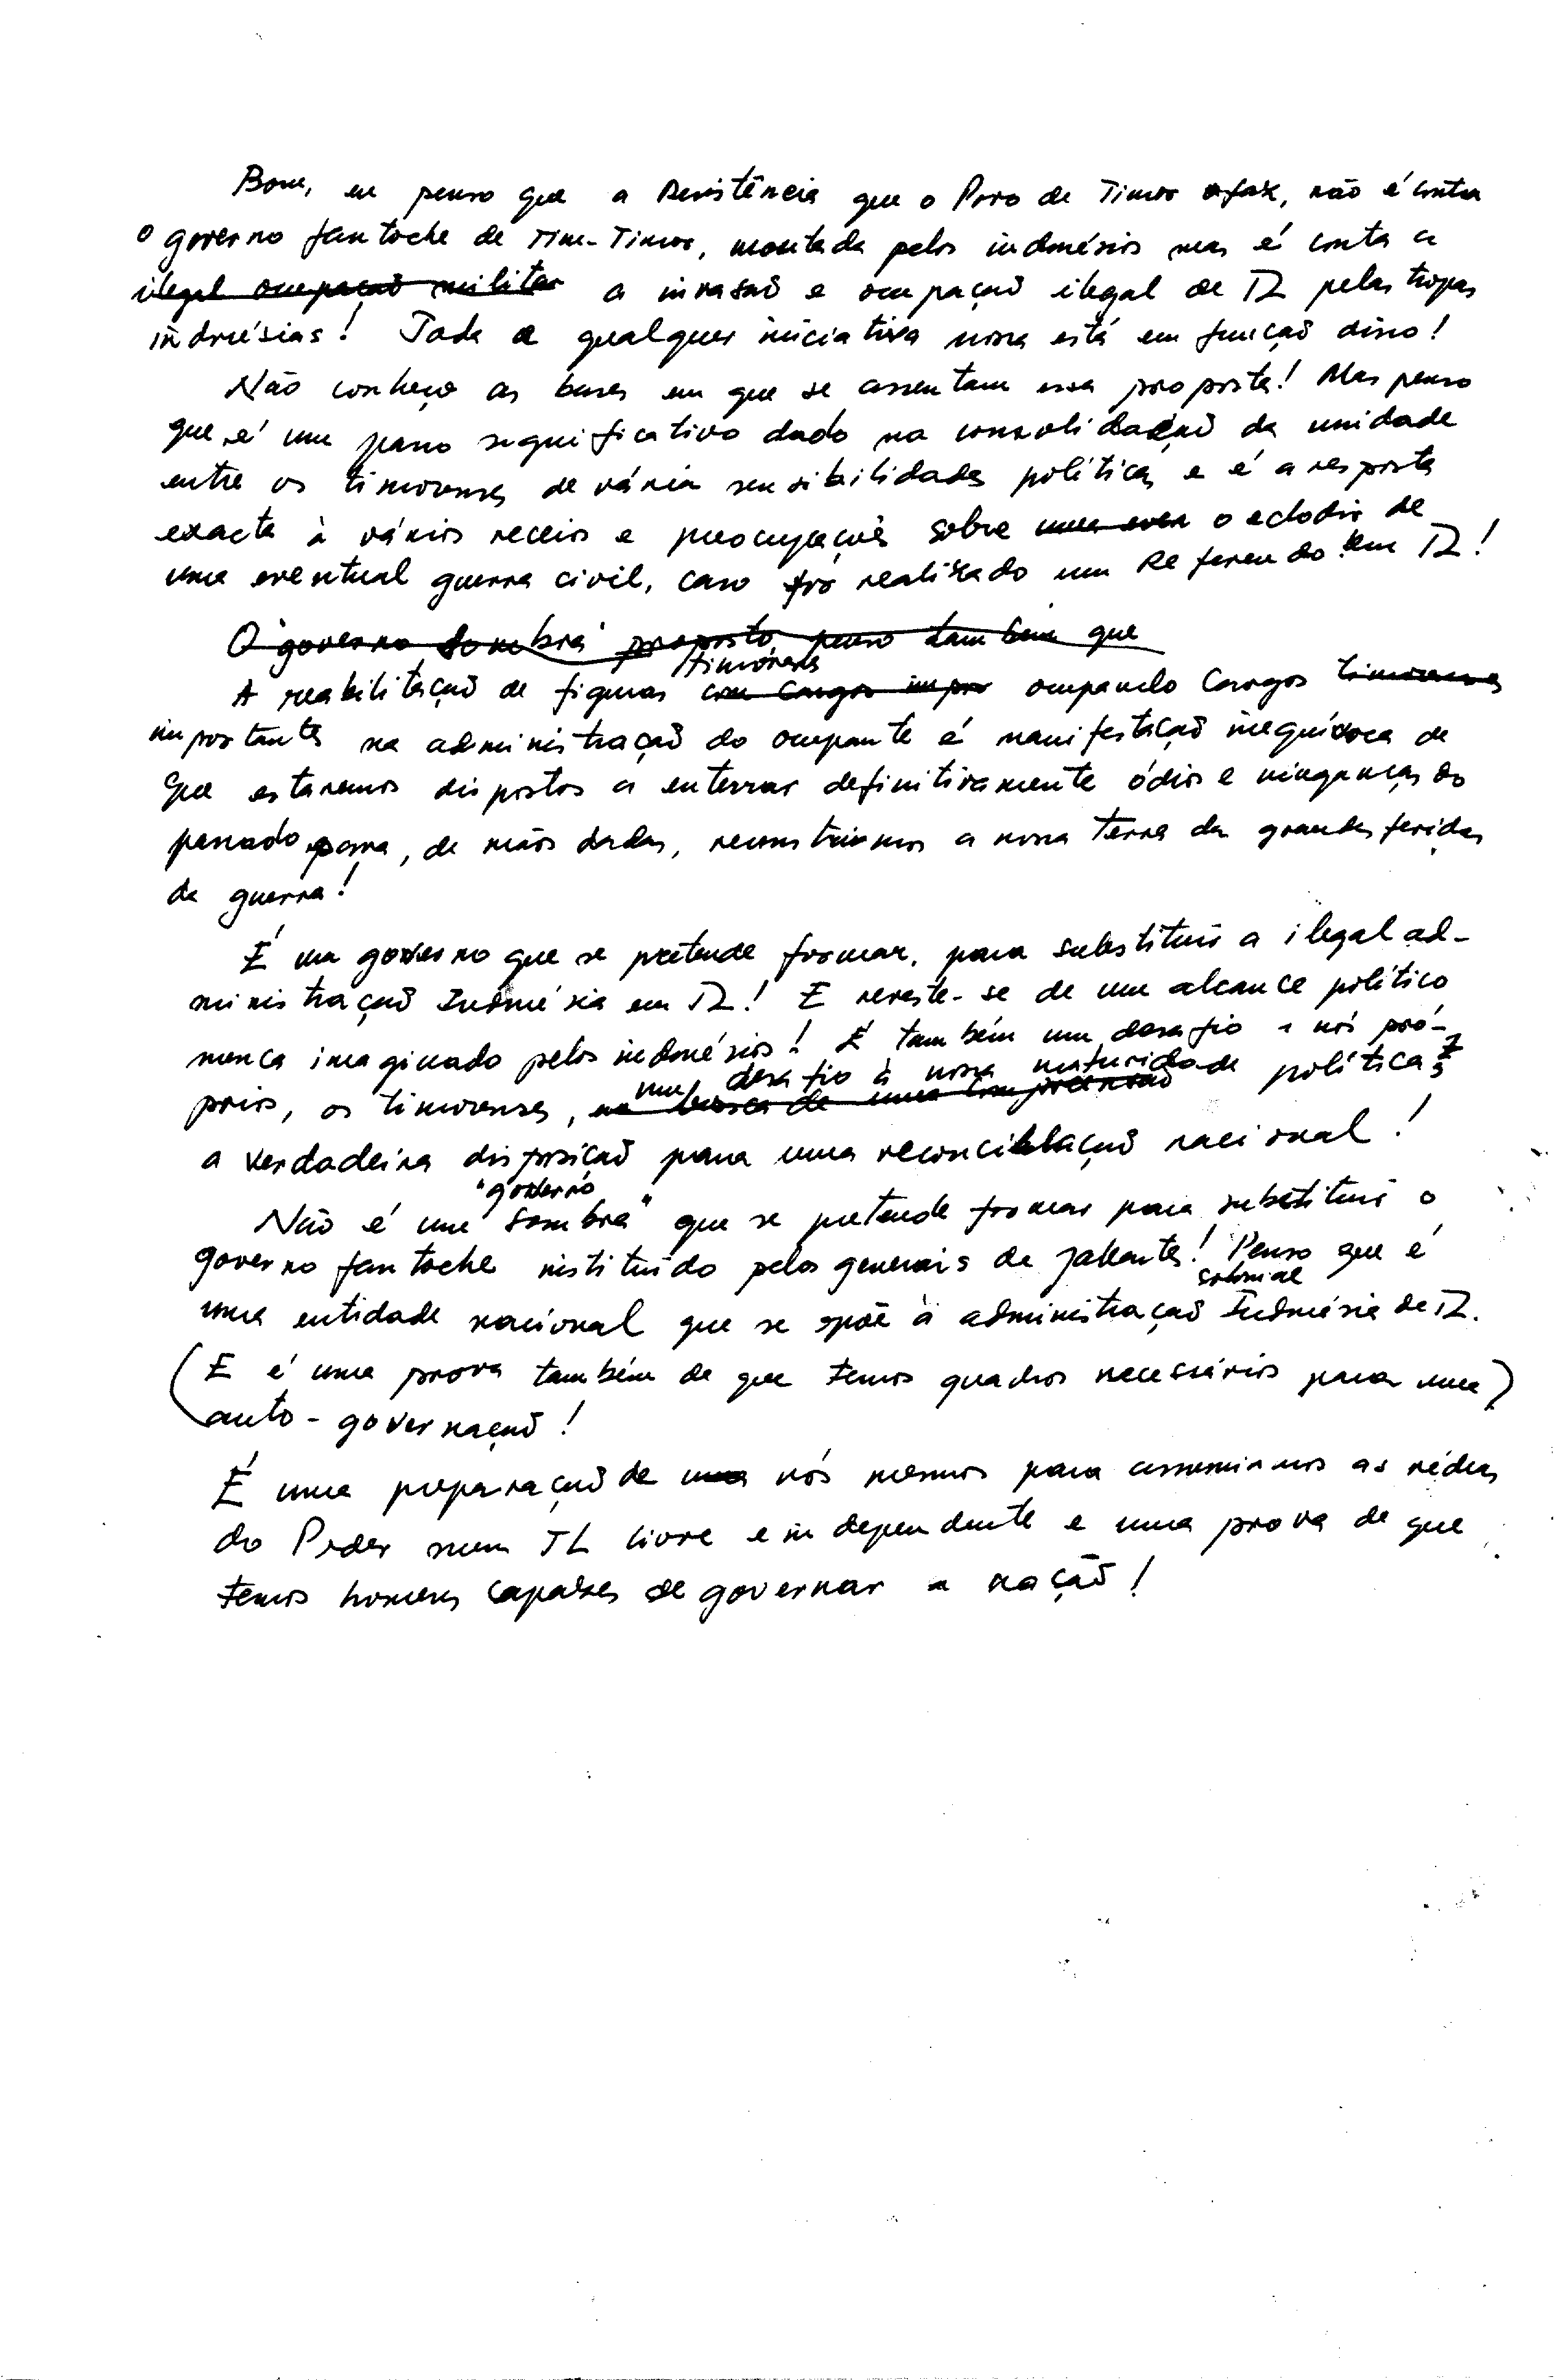 Bom, eu penso que a Resistência que o Povo de Timor faz, não é contra
o governo fantoche de Tim-Timor, montada pelos indonésios mas é conta a
ilegal ocupação militar a invasão e ocupação ilegal de TL pelas tropas
indonésias! Toda e qualquer iniciativa nossa está em função disso!
Não conheço as bases em que se assentam essa proposta! Mas penso
que é um passo significativo dado na consolidação da unidade
entre os timorenses de vária sensibilidades políticas e é a resposta
exacta à vários receios e preocupações sobre o eclodir de
uma eventual guerra civil, caso for realizado um Referendo em TL!
O "governo sombra" proposto, penso também que
timorenses
A reabilitação de figuras com cargos impor ocupando cargos timorenses
importantes na administração do ocupante é manifestação inequívoca de
que estaremos dispostos a enterrar definitivamente ódios e vinganças do
passado para, de mãos dadas, reconstruirmos a nossa terra das grandes feridas
da guerra!
É um governo que se pretende formar, para substituir a ilegal ad-
ministração Indonésia em TL! E reveste-se de um alcance político
nunca imaginado pelos indonésios! É também um desafio a nós pró-
um desafio à nossa maturidade política E
prios, os timorenses, na busca de uma compreensão
a verdadeira disposição para uma reconciliação nacional!
"governo
Não é um sombra" que se pretende formar para substituir o
governo fantoche instituído pelos generais de Jakarta! Penso que é
colonial
uma entidade nacional que se opõe à administração Indonésia de TL.
(E é uma prova também de que temos quadros necessários para uma)
auto-governação!
É uma preparação de nós mesmos para assumirmos as rédeas
do Poder num TL livre e independente e uma prova de que
temos homens capazes de governar a nação!